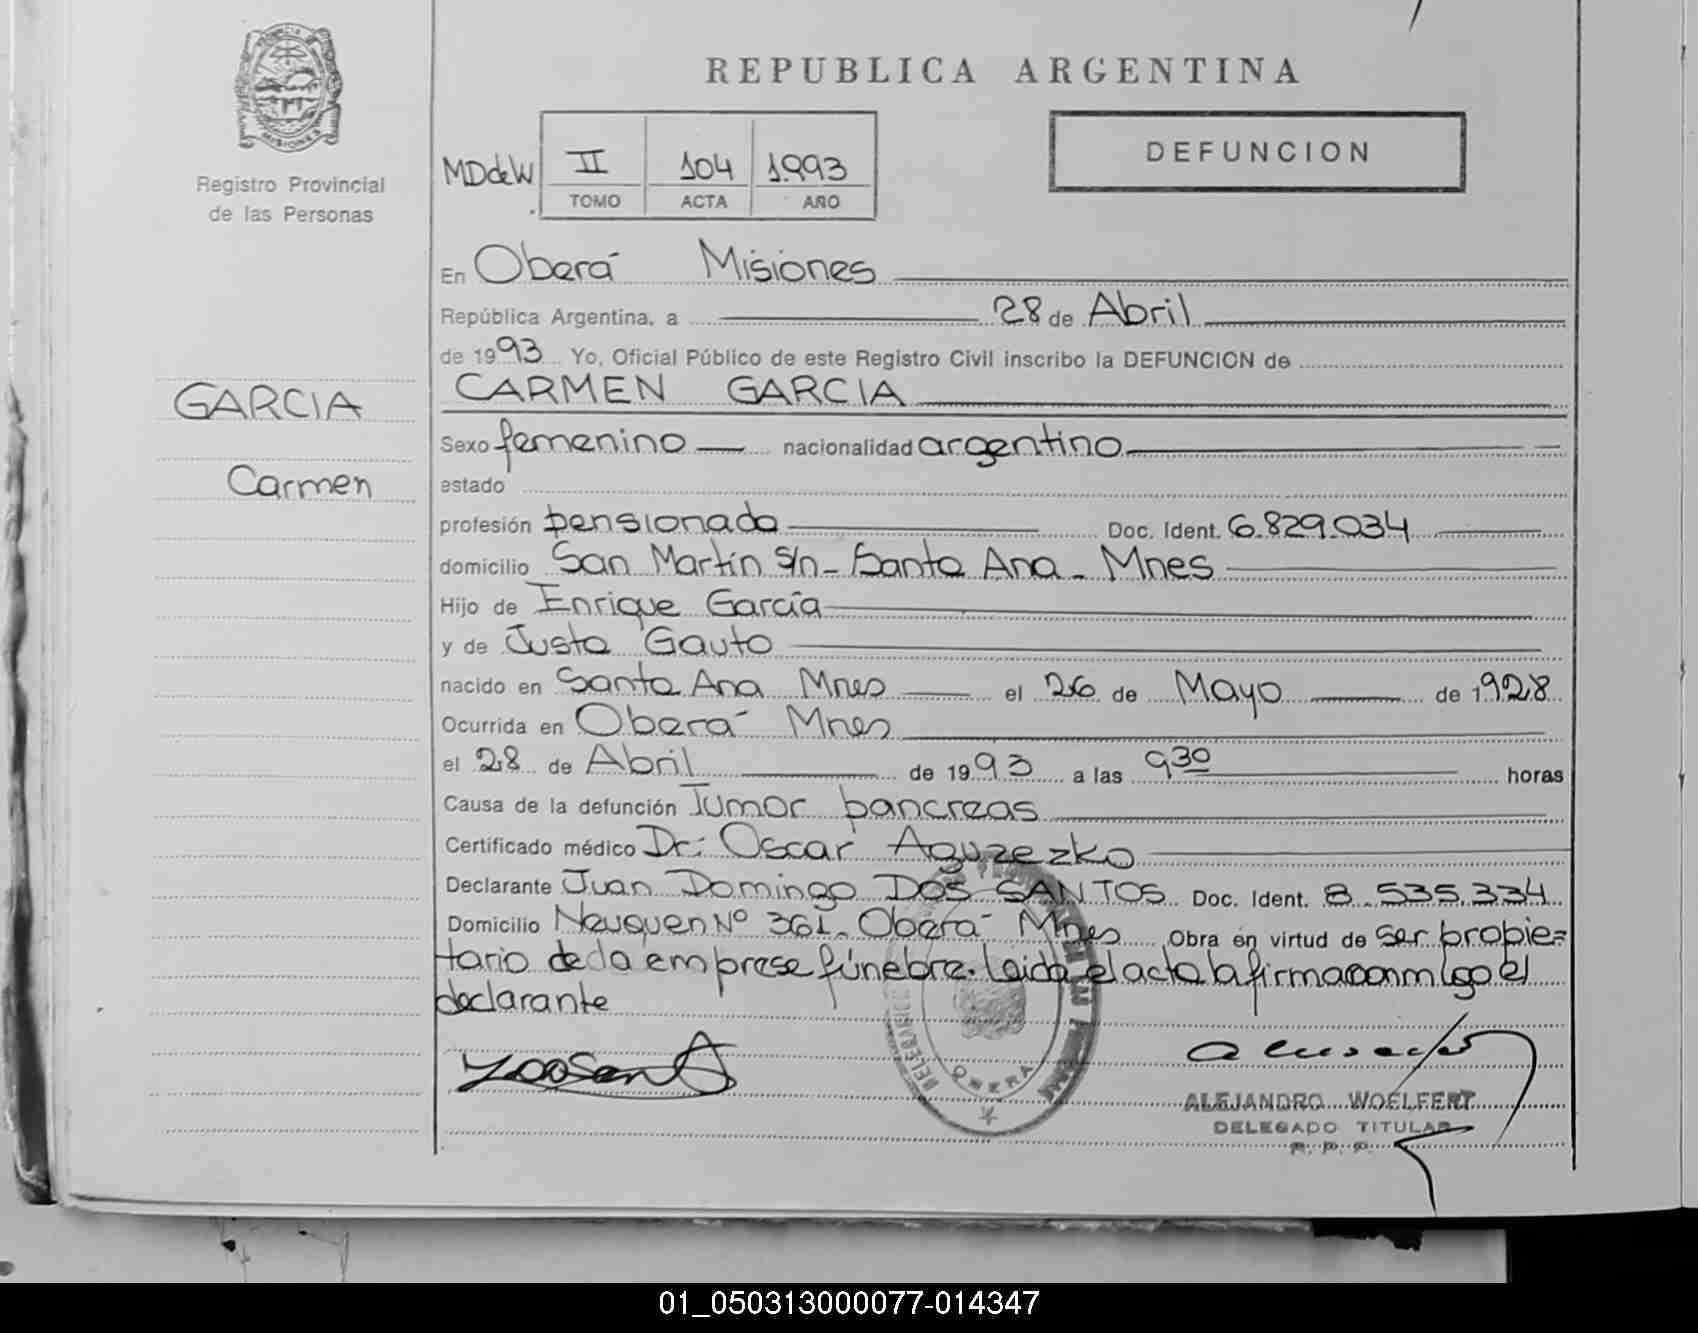 REPUBLICA ARGENTINA
MISIONES
Registro Provincial
de las Personas
MDdeW II 104 1993
TOMO ACTA AÑO
DEFUNCION
En Oberá Misiones
República Argentina, a 28 de Abril
de 1993 Yo, Oficial Público de este Registro Civil inscribo la DEFUNCION de
GARCIA
CARMEN GARCIA
Sexo femenino nacionalidad argentino
Carmen
estado
profesión pensionada Doc. Ident. 6.829.034
domicilio San Martín s/n - Santa Ana - Mnes
Hijo de Enrique García
y de Justa Gauto
nacido en Santa Ana Mnes el 26 de Mayo de 1928
Ocurrida en Oberá Mnes
el 28 de Abril de 1993 a las 9 30 horas
Causa de la defunción Tumor pancreas
Certificado médico Dr: Oscar Aguzezko
Declarante Juan Domingo DOS SANTOS Doc. Ident. 8.535.334
Domicilio Neuquen Nº 361. Oberá Mnes Obra en virtud de ser propie=
tario de la emprese fúnebre. Leida el acta la firma conmigo el
declarante
OBERA
ALEJANDRO WOELFERT
DELEGADO TITULAR
R. P. P.
01_050313000077-014347